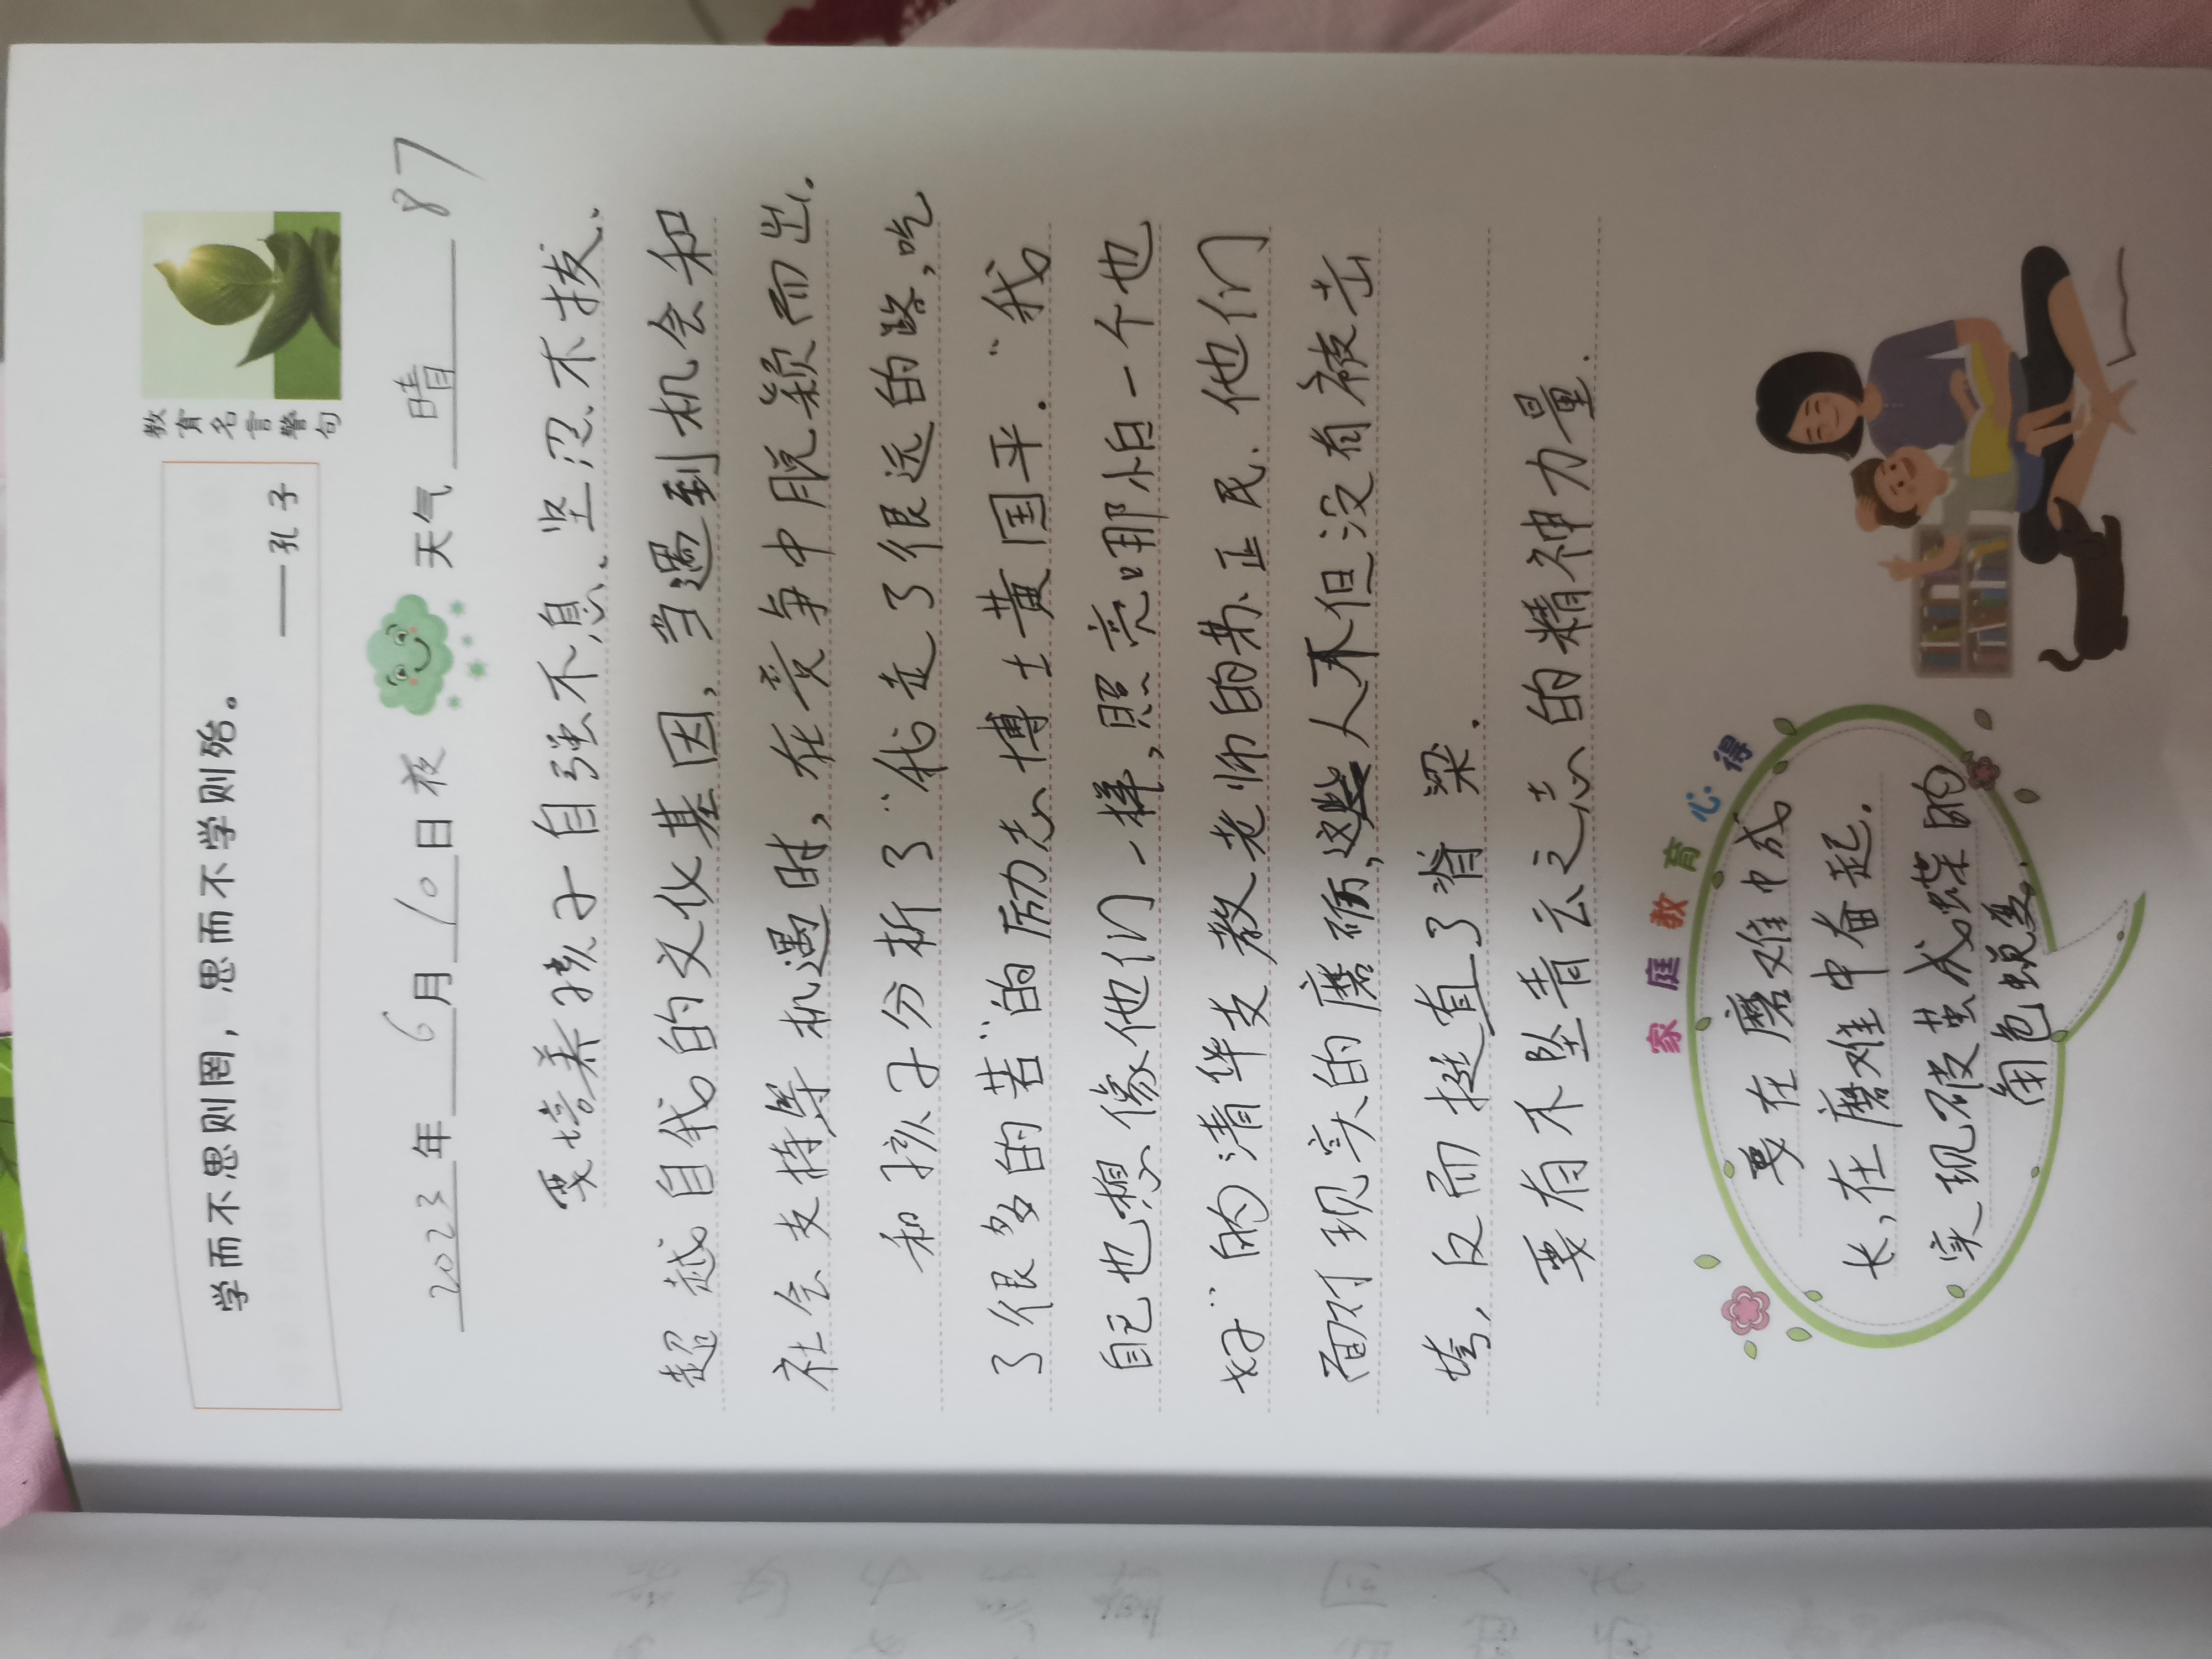 教育名言警句
学而不思则罔，思而不学则殆。
——孔子
2023年6月10日夜 天气 晴 87
要培养孩子自强不息、坚忍不拔、
超越自我的文化基因，当遇到机会和
社会支持等机遇时，在竞争中脱颖而出.
和孩子分析了“我走了很远的路，吃
了很多的苦”的励志博士黄国平.“我
自己也想像他们一样，照亮哪怕一个也
好”的清华支教老师的苏正民.他们
面对现实的磨砺，这些人不但没有被击
垮，反而挺直了脊梁.
要有不坠青云之志的精神力量.
家庭教育心得
要在磨难中成
长，在磨难中奋起.
实现破茧成蝶的
角色蜕变.